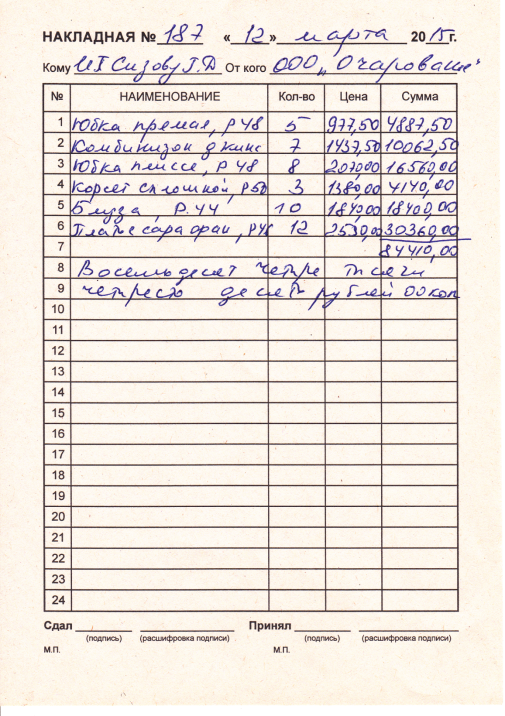 НАКЛАДНАЯ № 187 «12» марта 2015г.
Кому ИП Сизову Г.Д От кого ООО „Очарование"
№ НАИМЕНОВАНИЕ Кол-во Цена Сумма
1 Юбка прямая, р 48 5 977,50 4887,50
2 Комбинизон джинс 7 1437,50 10062,50
3 Юбка плиссе, р 48 8 2070,00 16560,00
4 Корсет сплошной, р50 3 1380,00 4140,00
5 Блуза, р.44 10 1840,00 18400,00
6 Платье сарафан, р48 12 2530,00 30360,00
7 84410,00
8 Восемьдесят четыре тысячи
9 четыреста десять рублей 00 коп
10
11
12
13
14
15
16
17
18
19
20
21
22
23
24
Сдал Принял
(подпись) (расшифровка подписи) (подпись) (расшифровка подписи)
М.П. М.П.